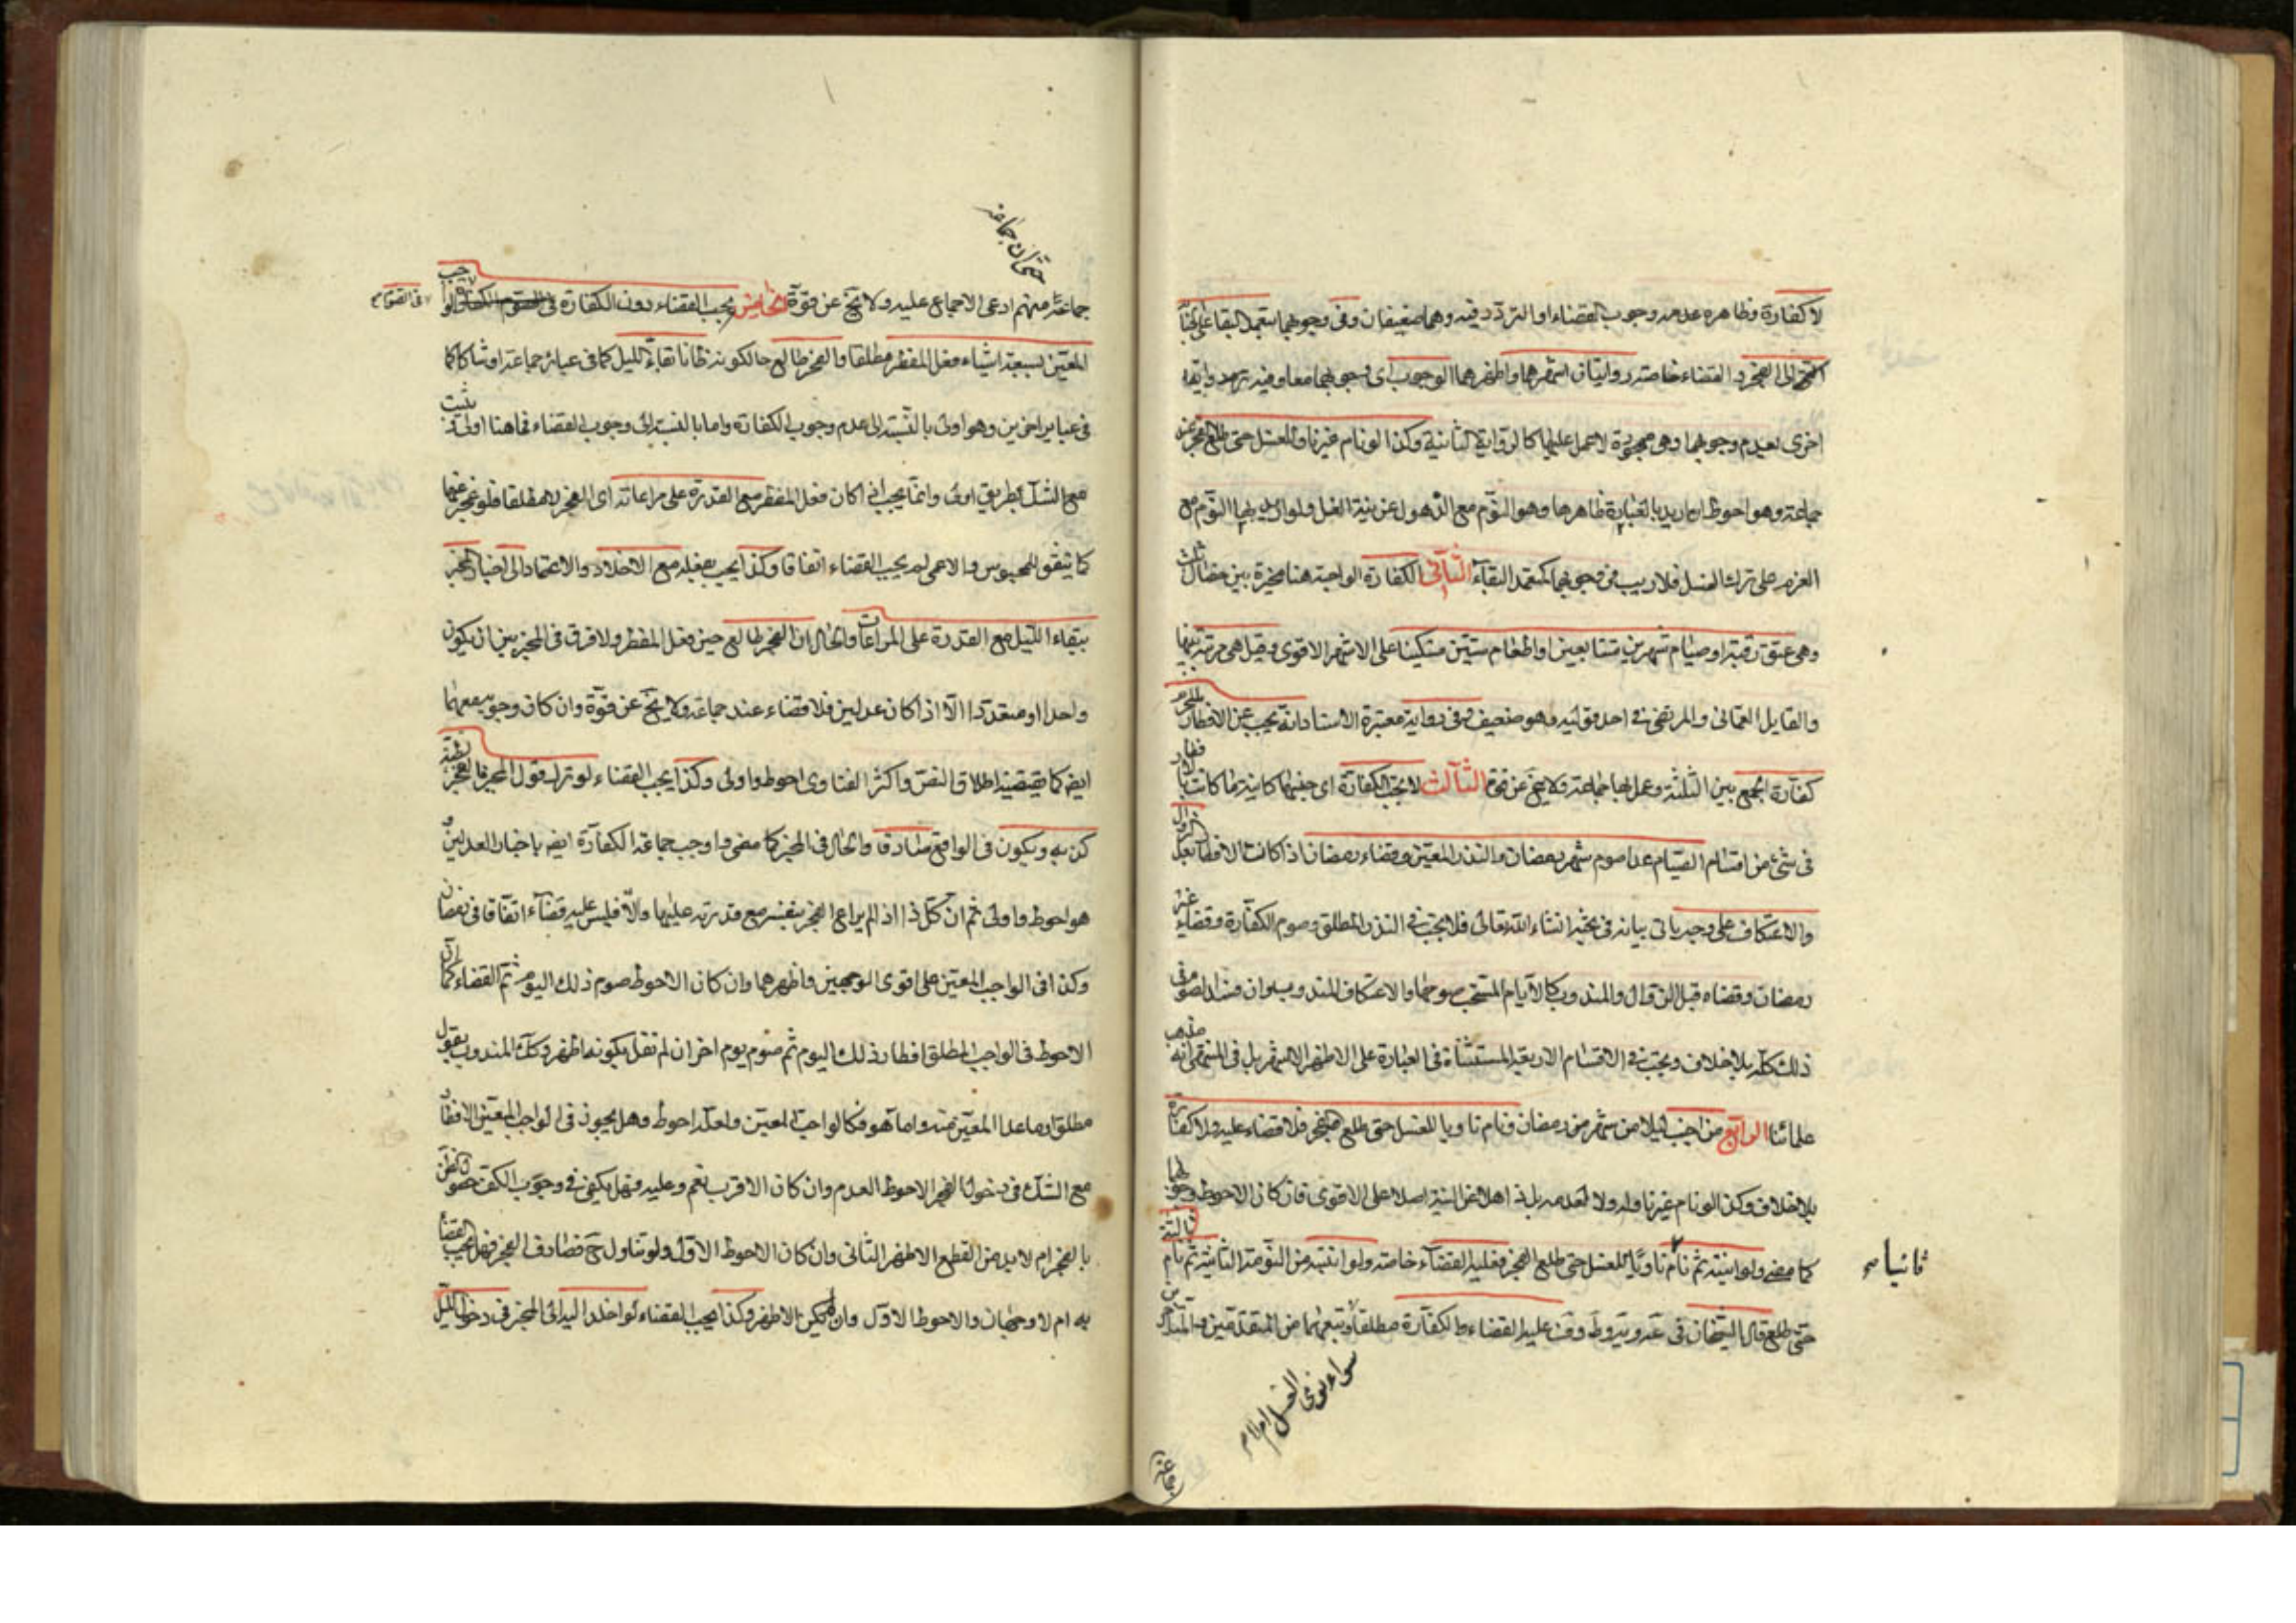 لا كفارة وظاهره عدم وجوب القضاء او التردد فيه وهما ضعيفان وفي وجوبهما بتعمد البقاء على الجنابة
الى الفجر والقضاء خاصة روايتان اشهرهما واظهرهما الوجوب اى وجوبهما معا وفيه رواية
اخرى بعدم وجوبهما وهى مهجورة لا عمل عليها كالرواية الثانية وكذا لو نام غير ناو للغسل حتى طلع الفجر عند
جماعة وهو احوط ان اريد بالعبارة ظاهرها وهو النوم مع الذهول عن نية الغسل ولو اريد بها النوم مع
العزم على ترك الغسل فلا ريب في وجوبهما كمتعمد البقاء الثانى الكفارة الواجبة هنا مخيرة بين خصال ثلث
وهى عتق رقبة او صيام شهرين متتابعين او اطعام ستين مسكينا على الاشهر الاقوى وقيل هى مرتبة بينها
والقايل العمانى والمرتضى فى احد قوليه وهو ضعيف وفى رواية معتبرة الاسناد انه يجب عن الافطار بالمحرم
كفارة الجمع بين الثلثة وعمل بها جماعة ولا يخ عن قوة الثالث لا يجب الكفارة اى جنسها كاينة ما كانت
فى شئ من اقسام الصيام عدا صوم شهر رمضان والنذر المعين وقضاء رمضان اذا كان الافطار بعد الزوال
والاعتكاف على وجه ياتى بيانه فى بحثه انشاء الله تعالى فلا يجب فى النذر المطلق وصوم الكفارة وقضاء غير
رمضان وقضاه قبل الزوال والمندوب كالايام المستحب صومها والاعتكاف المندوب وان فسد الصوم فى
ذلك كله بلا خلاف ويجب فى الاقسام الاربعة المستثناة فى العبارة على الاظهر الاشهر بل فى المنتهى انه مذهب
علمائنا الرابع من اجنب ليلا من شهر رمضان ونام ناويا للغسل حتى طلع الفجر فلا قضاء عليه ولا كفارة
بلا خلاف وكذا لو نام غير ناو له ولا لعدمه بل ذاهلا عن النية اصلا على الاقوى وان كان الاحوط وجوبهما
كما مضى ولو انتبه ثم نام ناويا للغسل حتى طلع الفجر فعليه القضاء خاصة ولو انتبه من النومة الثانية ثم نام ثالثة
ثانيا صح
حتى طلع قال الشيخان فى عليه القضاء والكفارة مطلقا وتبعهما من المتقدمين
سواء نوى الغسل ام لا صح
جماعة
حتى ان جماعة
جماعة منهم ادعى الاجماع عليه ولا يخ عن قوة الخامس يجب القضاء دون الكفارة فى الصوم الواجب
فى الصوم صح
المعين بسبعة اشياء فعل المفطر مطلقا والفجر طالع حالكونه ظانا بقاء الليل كما فى عباير جماعة او شاكا كما
فى عباير اخرين وهو اولى بالنسبة الى عدم وجوب الكفارة واما بالنسبة الى وجوب القضاء فما هنا اولى
مع الشك بطريق اولى وانما يجب اذا كان فعل المفطر مع القدرة على مراعاته اى الفجر مطلقا فلو عجز عنها
كما يتفق للمحبوس والاعمى لم يجب القضاء اتفاقا وكذا يجب بفعله مع الاخلاد والاعتماد الى اخبار المخبر
ببقاء الليل مع القدرة على المراعات والحال ان الفجر طالع حين فعل المفطر ولا فرق فى المخبر بين ان يكون
واحدا او متعددا الا اذا كان عدلين فلا قضاء عند جماعة ولا يخ عن قوة وان كان وجوبه معهما
ايضه كما يقتضيه اطلاق النص واكثر الفتاوى احوط واولى وكذا يجب القضاء لو ترك قول المخبر بالفجر لظنه
كذبه ويكون فى الواقع صادقا والحال فى المخبر كما مضى واوجب جماعة الكفارة ايضه باخبار العدلين و
هو احوط واولى ثم ان كل ذا اذا لم يراع الفجر بنفسه مع قدرته عليها والا فليس عليه قضاء اتفاقا فى رمضان
وكذا فى الواجب المعين على اقوى الوجهين واظهرهما وان كان الاحوط صوم ذلك اليوم ثم القضاء كما ان
الاحوط فى الواجب المطلق افطار ذلك اليوم ثم صوم يوم اخر ان لم نقل بكونه اظهر وكك المندوب بقول
مطلق او ما عدا المعين منه واما هو فكالواجب المعين ولعله احوط وهل يجوز فى الواجب المعين الافطار
مع الشك فى دخول الفجر الاحوط العدم وان كان الاقرب نعم وعليه فهل يكفى فى وجوب الكف حصول الظن
بالفجر ام لا بد من القطع الاظهر الثانى وان كان الاحوط الاول ولو تناول ح فصادف الفجر فهل يجب القضاء
به ام لا وجهان والاحوط الاول وان لم يكن الاظهر وكذا يجب القضاء لو اخلد اليه اى المخبر فى دخول الليل